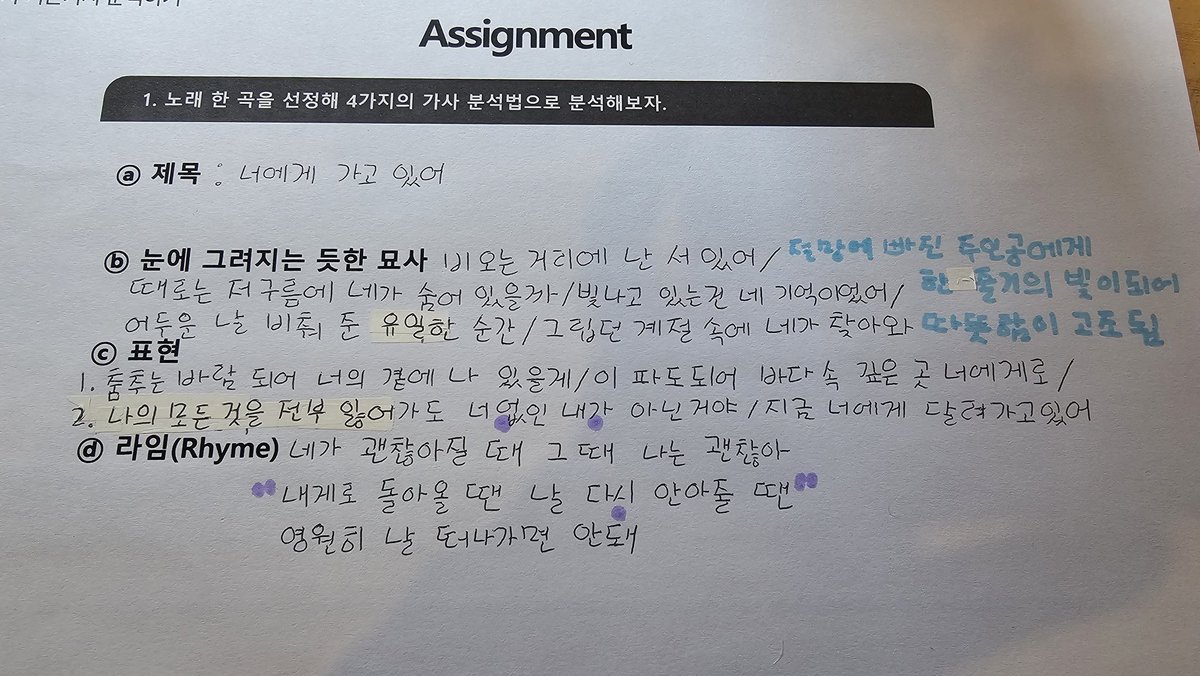 Assignment
1. 노래 한 곡을 선정해 4가지의 가사 분석법으로 분석해보자.
ⓐ 제목 : 너에게 가고 있어
ⓑ 눈에 그려지는 듯한 묘사 비오는 거리에 난 서 있어/ 절망에 빠진 주인공에게
때로는 저 구름에 네가 숨어 있을까/빛나고 있는건 네 기억이었어/ 한 줄기의 빛이 되어
어두운 날 비춰 준 유일한 순간/그립던 계절 속에 네가 찾아와 따뜻함이 고조됨
ⓒ 표현
1. 춤추는 바람 되어 너의 곁에 나 있을게/이 파도되어 바다 속 깊은 곳 너에게로/
2. 나의 모든것을 전부 잃어가도 너 없인 내가 아닌거야/지금 너에게 달려가고있어
ⓓ 라임(Rhyme) 네가 괜찮아질 때 그때 나는 괜찮아
"내게로 돌아올 땐 날 다시 안아줄 땐"
영원히 날 떠나가면 안돼